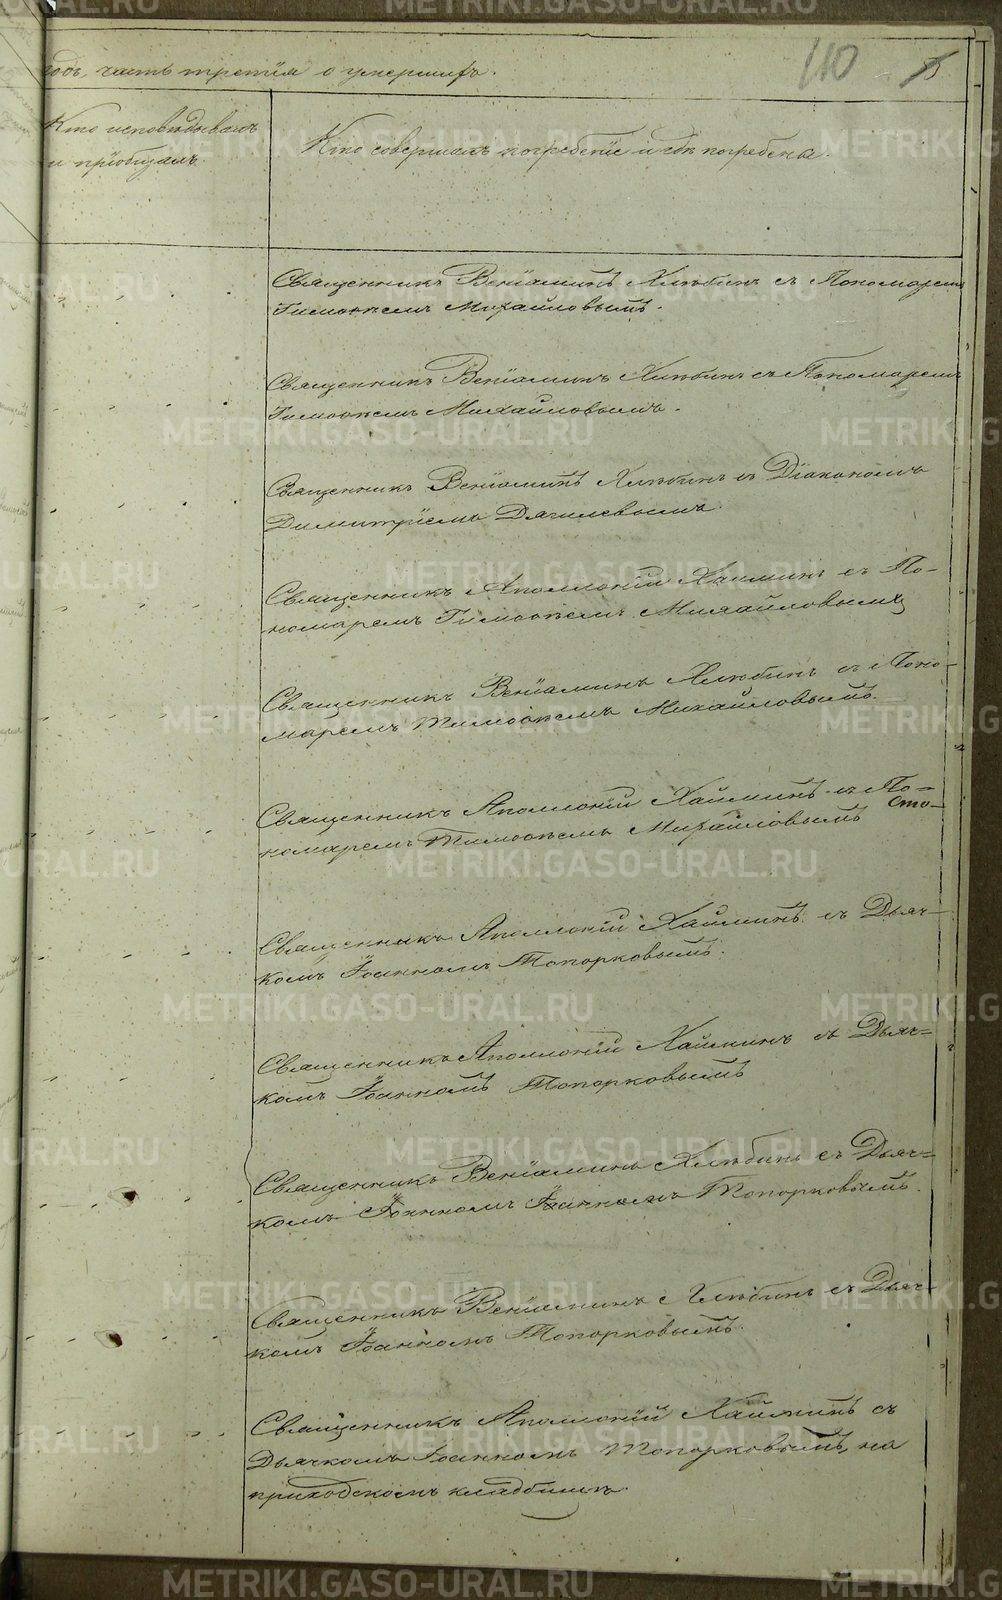 110
годъ, часть третія о умершихъ.
Кто исповѣдывалъ
и пріобщалъ.
Кто совершалъ погребеніе и гдѣ погребены.
Священникъ Веніаминъ Хлѣбинъ съ Пономаремъ
Тимоѳеемъ Михайловымъ.
Священникъ Веніаминъ Хлѣбинъ съ Пономаремъ
Тимоѳеемъ Михайловымъ.
Священникъ Веніаминъ Хлѣбинъ съ Діакономъ
Димитріемъ Дягилевымъ.
Священникъ Аполлоній Хайминъ съ По-
номаремъ Тимоѳеемъ Михайловымъ
Священникъ Веніаминъ Хлѣбинъ съ Поно-
маремъ Тимоѳеемъ Михайловымъ.
Священникъ Аполлоній Хайминъ съ По=
номаремъ Тимоѳеемъ Михайловымъ
Священникъ Аполлоній Хайминъ съ Дьяч-
комъ Іоанномъ Топорковымъ.
Священникъ Аполлоній Хайминъ съ Дьяч=
комъ Іоанномъ Топорковымъ
Священникъ Веніаминъ Хлѣбинъ съ Дьяч=
комъ Іоанномъ Іоанномъ Топорковымъ.
Священникъ Веніаминъ Хлѣбинъ съ Дьяч-
комъ Іоанномъ Топорковымъ.
Священникъ Аполлоній Хайминъ съ
Дьячкомъ Іоанномъ Топорковымъ, на
приходскомъ кладбищѣ.
METRIKI.GASO-URAL.RU